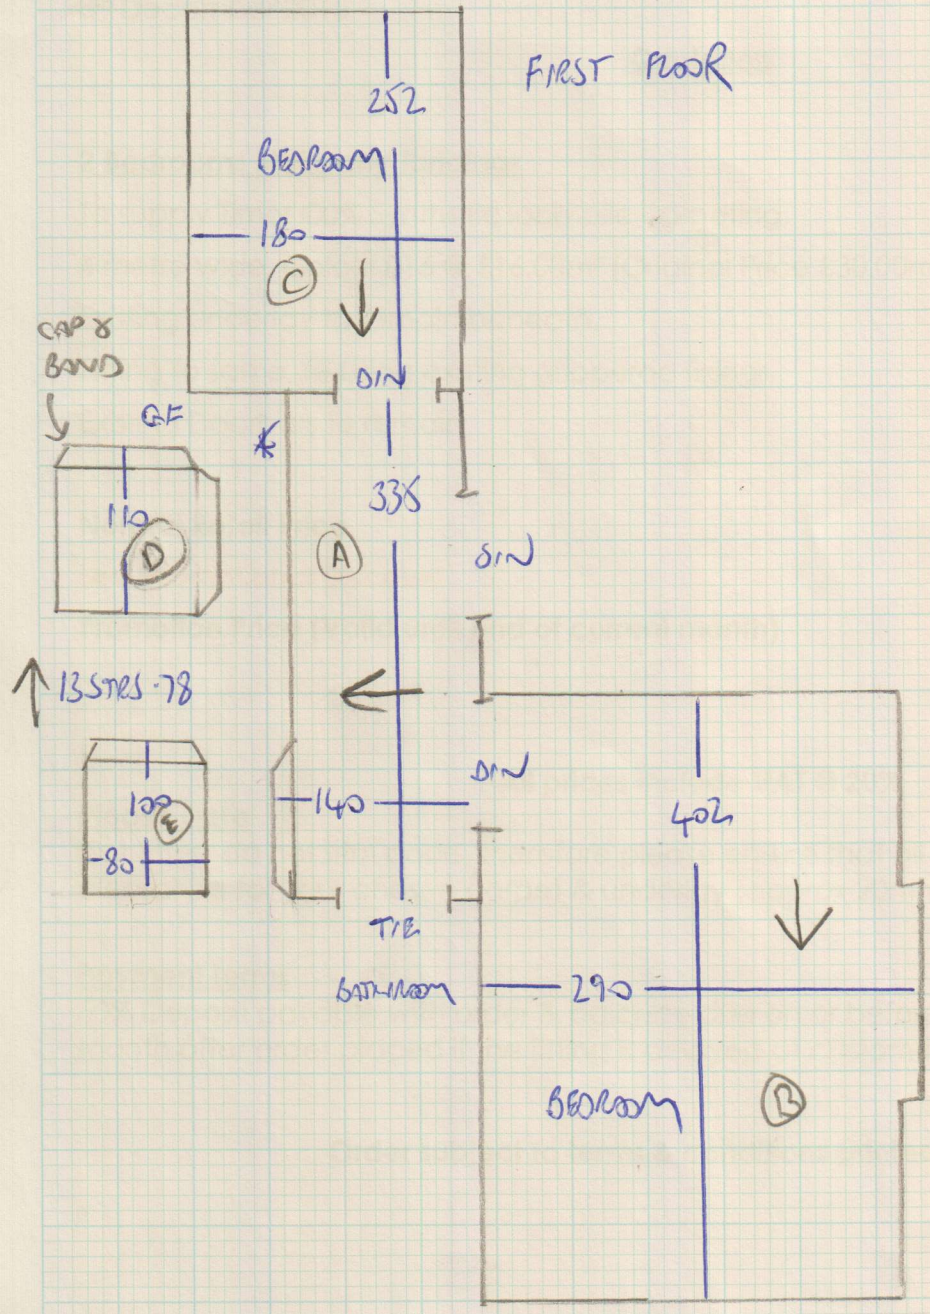 FIRST FLOOR
252
BEDROOM
180
C
CAP &
BAND
DIN
GF
338
110
D
A
DIN
13 STRS · 78
DIN
100
E
140
402
80
BATHROOM
290
BEDROOM
B